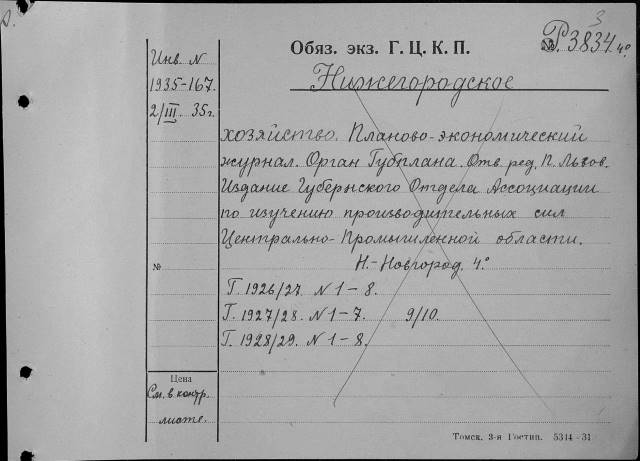 3
Обяз. экз. Г. Ц. К. П.
№ P.3834 4º
Инв. N
1935-167.
2/III. 35г.
Нижегородское
хозяйство. Планово-экономический
журнал. Орган Губплана. Отв. ред. П. Львов.
Издание Губернского Отдела Ассоциации
по изучению производительных сил
Центрально-Промышленной области.
Н.-Новгород. 4º
№
Г. 1926/27. N 1-8.
Г. 1927/28. N 1-7. 9/10.
Г. 1928/29. N 1-8.
Цена
См. в контр.
листе.
Томск. 3-я Гостип. 5314-31